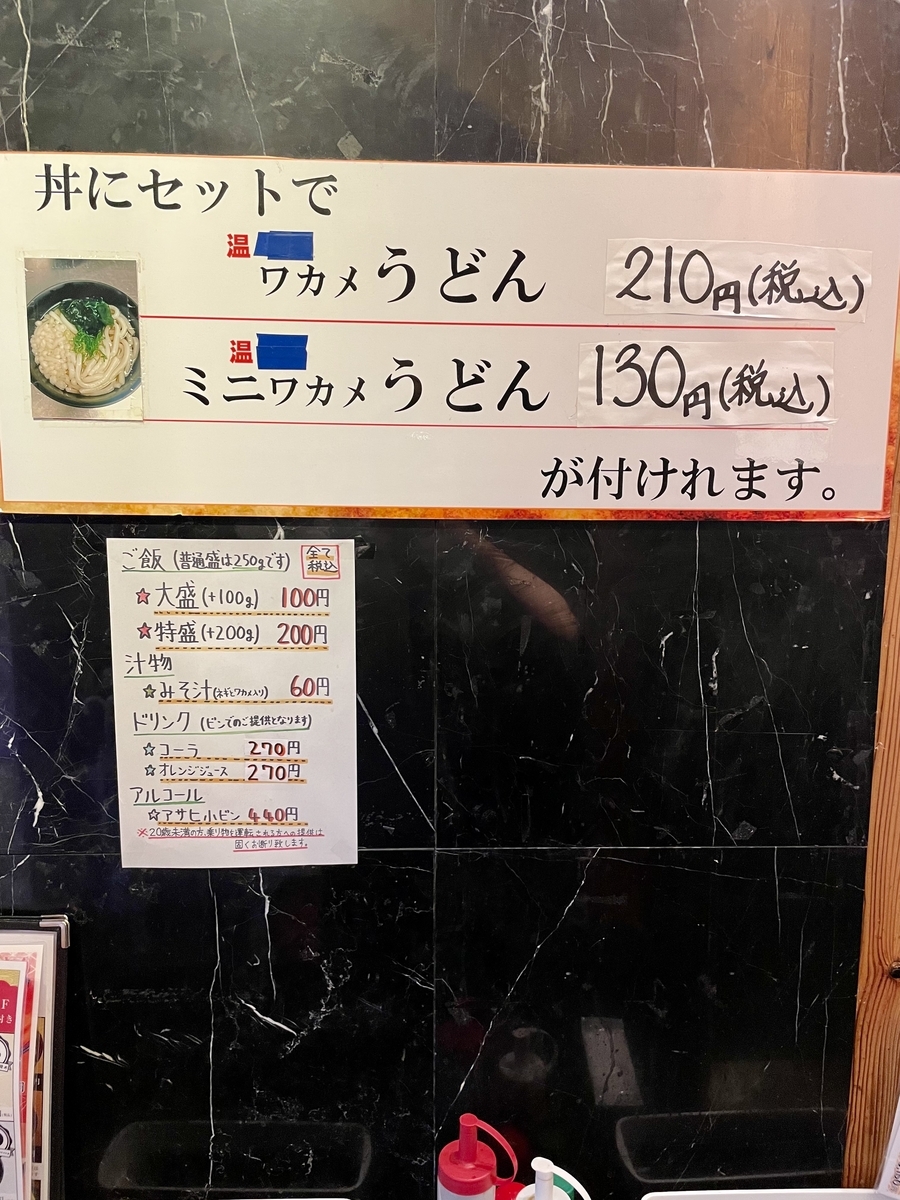 丼にセットで
温
ワカメうどん 210円(税込)
温
ミニワカメうどん 130円(税込)
が付けれます。
ご飯 (普通盛は250gです) 全て税込
☆大盛(+100g) 100円
☆特盛(+200g) 200円
汁物
☆みそ汁(ネギとワカメ入り) 60円
ドリンク (ビンでのご提供となります)
☆コーラ 270円
☆オレンジジュース 270円
アルコール
☆アサヒ小ビン 440円
※20歳未満の方、乗り物を運転される方への提供は
固くお断り致します。
F
付き